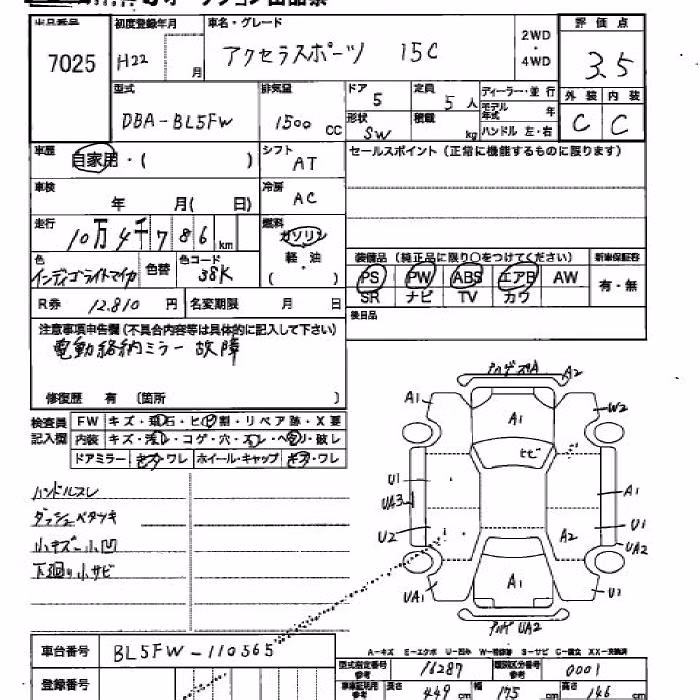 出品番号 初度登録年月 車名・グレード 2WD・4WD 評価点
7025 H22 月 アクセラスポーツ 15C 3.5
型式 排気量 ドア 5 定員 5人 ディーラー・並行 外装 内装
DBA-BL5FW 1500 CC 形状 SW 積載 kg モデル年式 年 C C
ハンドル 左・右
車歴 自家用・( ) シフト AT セールスポイント(正常に機能するものに限ります)
車検 年 月( 日) 冷房 AC
走行 10万4千786km 燃料 ガソリン 軽・油 ( )
色 インディゴライトマイカ 色替 色コード 38K
装備品(純正品に限り○をつけてください) 新車保証書
PS PW ABS エアB AW 有・無
SR ナビ TV カワ
R券 12,810円 名変期限 月 日 後日品
注意事項申告欄(不具合内容等は具体的に記入して下さい)
電動格納ミラー 故障
修復歴 有 〔箇所 〕
検査員記入欄 FW キズ・飛石・ヒビ割・リペア跡・X要
内装 キズ・汚レ・コゲ・穴・スレ・ヘタリ・破レ
ドアミラー キズ・ワレ ホイール・キャップ キズ・ワレ
ハンドルスレ
ダッシュベタツキ
小キズ 小凹
下廻り小サビ
A2
A1 W2
A1
ヒビ
U1
UA3 A1
U2 A2 U1
UA2
UA1 A1 U1
UA2
A-キズ E-エクボ U-凹み W-補修跡 S-サビ C-腐食 XX-交換済
車台番号 BL5FW-110365
型式指定番号参考 16287 類別区分番号参考 0001
登録番号 車車証明用参考 長さ 449 cm 幅 175 cm 高さ 146 cm